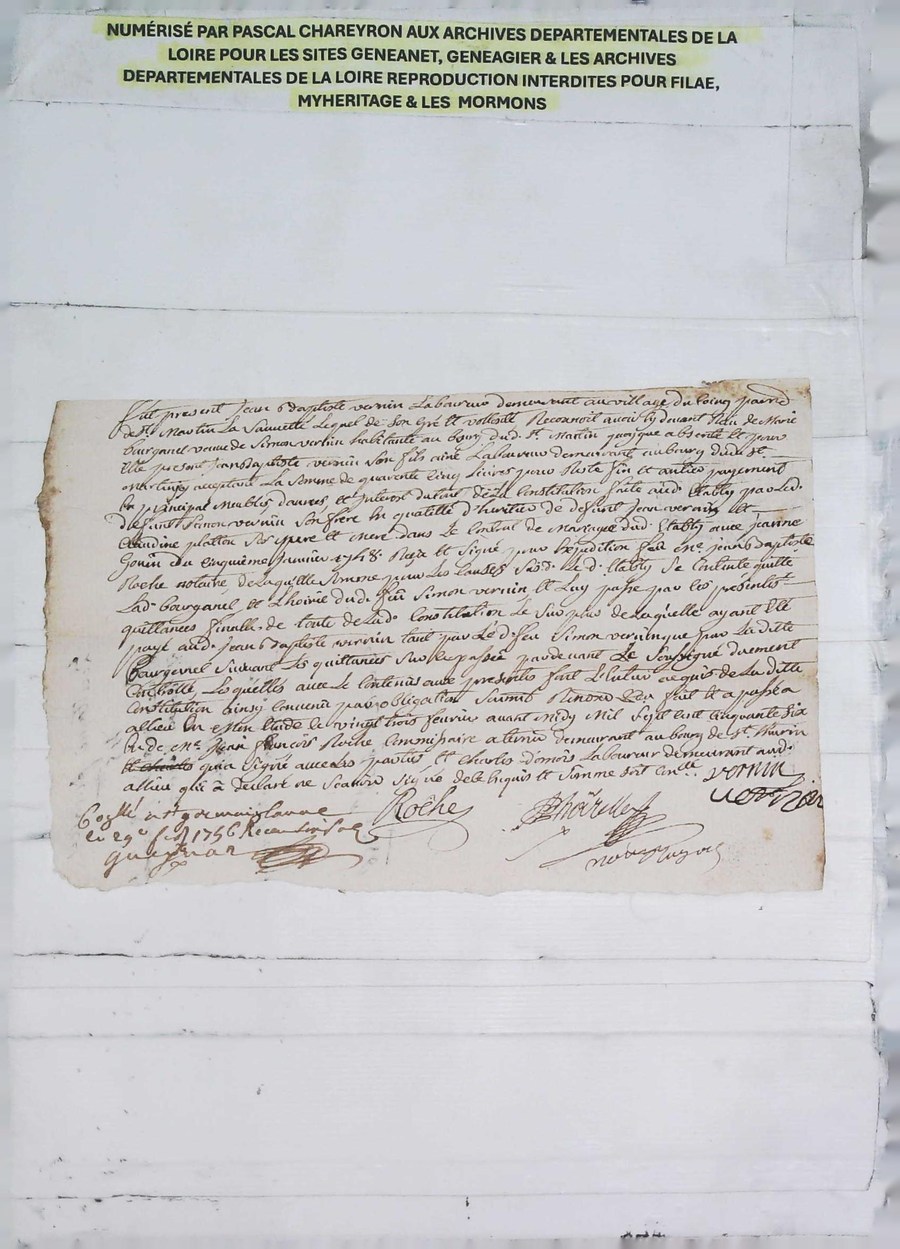 NUMÉRISÉ PAR PASCAL CHAREYRON AUX ARCHIVES DEPARTEMENTALES DE LA
LOIRE POUR LES SITES GENEANET, GENEAGIER & LES ARCHIVES
DEPARTEMENTALES DE LA LOIRE REPRODUCTION INTERDITES POUR FILAE,
MYHERITAGE & LES MORMONS
fut present Jean Baptiste vernin Laboureur demeurant au village du Coing parroisse
de St Martin La Sauveté Lequel de Son Gré et volonté Reconnoit avoir Reçu de Marie
bourganel veuve de Simon vernin habitante au bourg dud. St Martin quoique absente et pour
Elle present Jean Baptiste vernin Son fils ainé Laboureur demeurant au bourg dud. St
Martin acceptant La Somme de quarente Cinq Livres pour Reste fin et entier payement
En principal Meubles, et Interet de la Constitution faite aud. Etably par Led.
deffunt Simon vernin Son frere En quallité d'heritier de deffunt Jean vernin et
Claudine platton Ses pere et mere dans Le Contrat de Mariage dud. Etably avec jeanne
Gonin du cinquieme Janvier 1748 Reçu et Signé pour Expedition par Me jean Baptiste
Roche notaire, de Laquelle Somme pour Les Causes Sd. Led. Etably Se Contente quitte
Lad. bourganel et L'hoirie dud. feu Simon vernin et Luy passe par Ces presentes
quittance finalle de toute Lad. Constitution Le Surplus de Laquelle ayant Eté
payé aud. Jean Baptiste vernin tant par Led. feu Simon vernin que par La ditte
bourganel Suivant Les quittances Sur Ce passées pardevant Le Soussigné duement
Controllé, Lesquelles avec Le Contenu aux presentes font L'Entier acquis de La ditte
Constitution ainsy Convenu par obligation Soumis Renoncé &a fait et passé a
allieu En Mon Etude Le vingt trois fevrier avant Midy Mil Sept Cent Cinquante Six
En de Me Jean François Roche Commissaire a terrier demeurant au bourg de St
qui a Signé avec Les parties et Charles Laboureur demeurant aud.
allieu qui a declaré ne Scavoir Signer de ce Enquis et Sommé
vernin
Roche
vernin
notaire Royal
Conllé a St germain Laval
Le 29e fev 1756 Recu